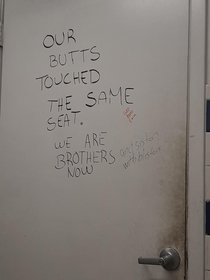 OUR
BUTTS
TOUCHED
THE SAME
SEAT.
WE ARE
BROTHERS
NOW